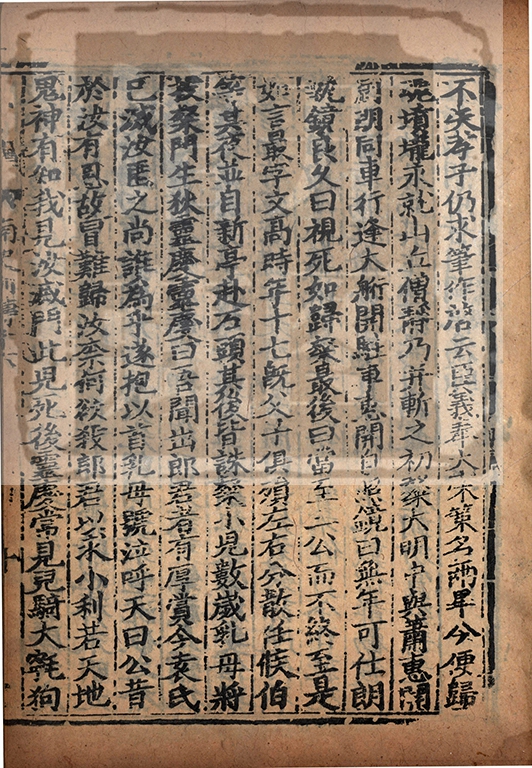 不失孝子仍求筆作啓云臣義奉大宋策名兩畢今便歸
魂墳壠永就山丘僧靜乃并斬之初粲大明中與蕭惠開
周朗同車行逢大桁開駐車惠開自照鏡曰無年可仕朗
執鏡良久曰視死如歸粲最後曰當至三公而不終至是
如言最字文高時年十七旣父子俱殞左右分散任候伯
等其夜並自新亭赴石頭其後皆誅粲小兒數歲乳母將
投粲門生狄靈慶靈慶曰吾聞出郎君者有厚賞今袁氏
已滅汝匿之尚誰爲乎遂抱以首乳母號泣呼天曰公昔
於汝有恩故冒難歸汝柰何欲殺郎君以求小利若天地
鬼神有知我見汝滅門此兒死後靈慶常見兒騎大狗